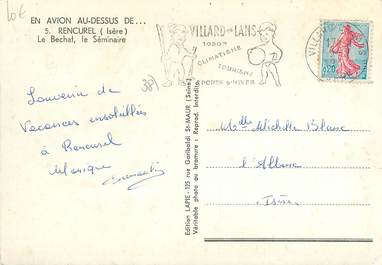 10€
EN AVION AU-DESSUS DE...
5. RENCUREL (Isère)
Le Bechat, le Séminaire
VILLARD-DE-LANS
1050m
CLIMATISME
TOURISME
SPORTS D'HIVER
VILL
0,20
38
Souvenir de
Vacances ensoleillées
à Rencurel
Monique
Edition LAPIE - 115 rue Garibaldi St-MAUR (Seine)
Véritable photo au bromure : Reprod. Interdite
Mlle Michelle Blanc
l'Albenc
Isère